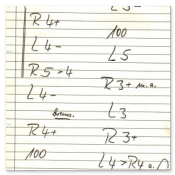 R 4+
L 4-
R 5 > 4
L 4-
R 4+
100
L 5-
100
L 5
R 3+ u.a.
L 3
R 3+
L 4 > R 4 a.